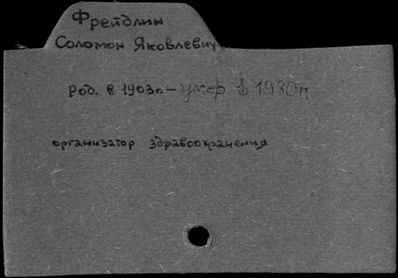 Фрейдлин
Соломон Яковлевич
род. в 1903 г. – умер в 1980 г.
организатор здравоохранения